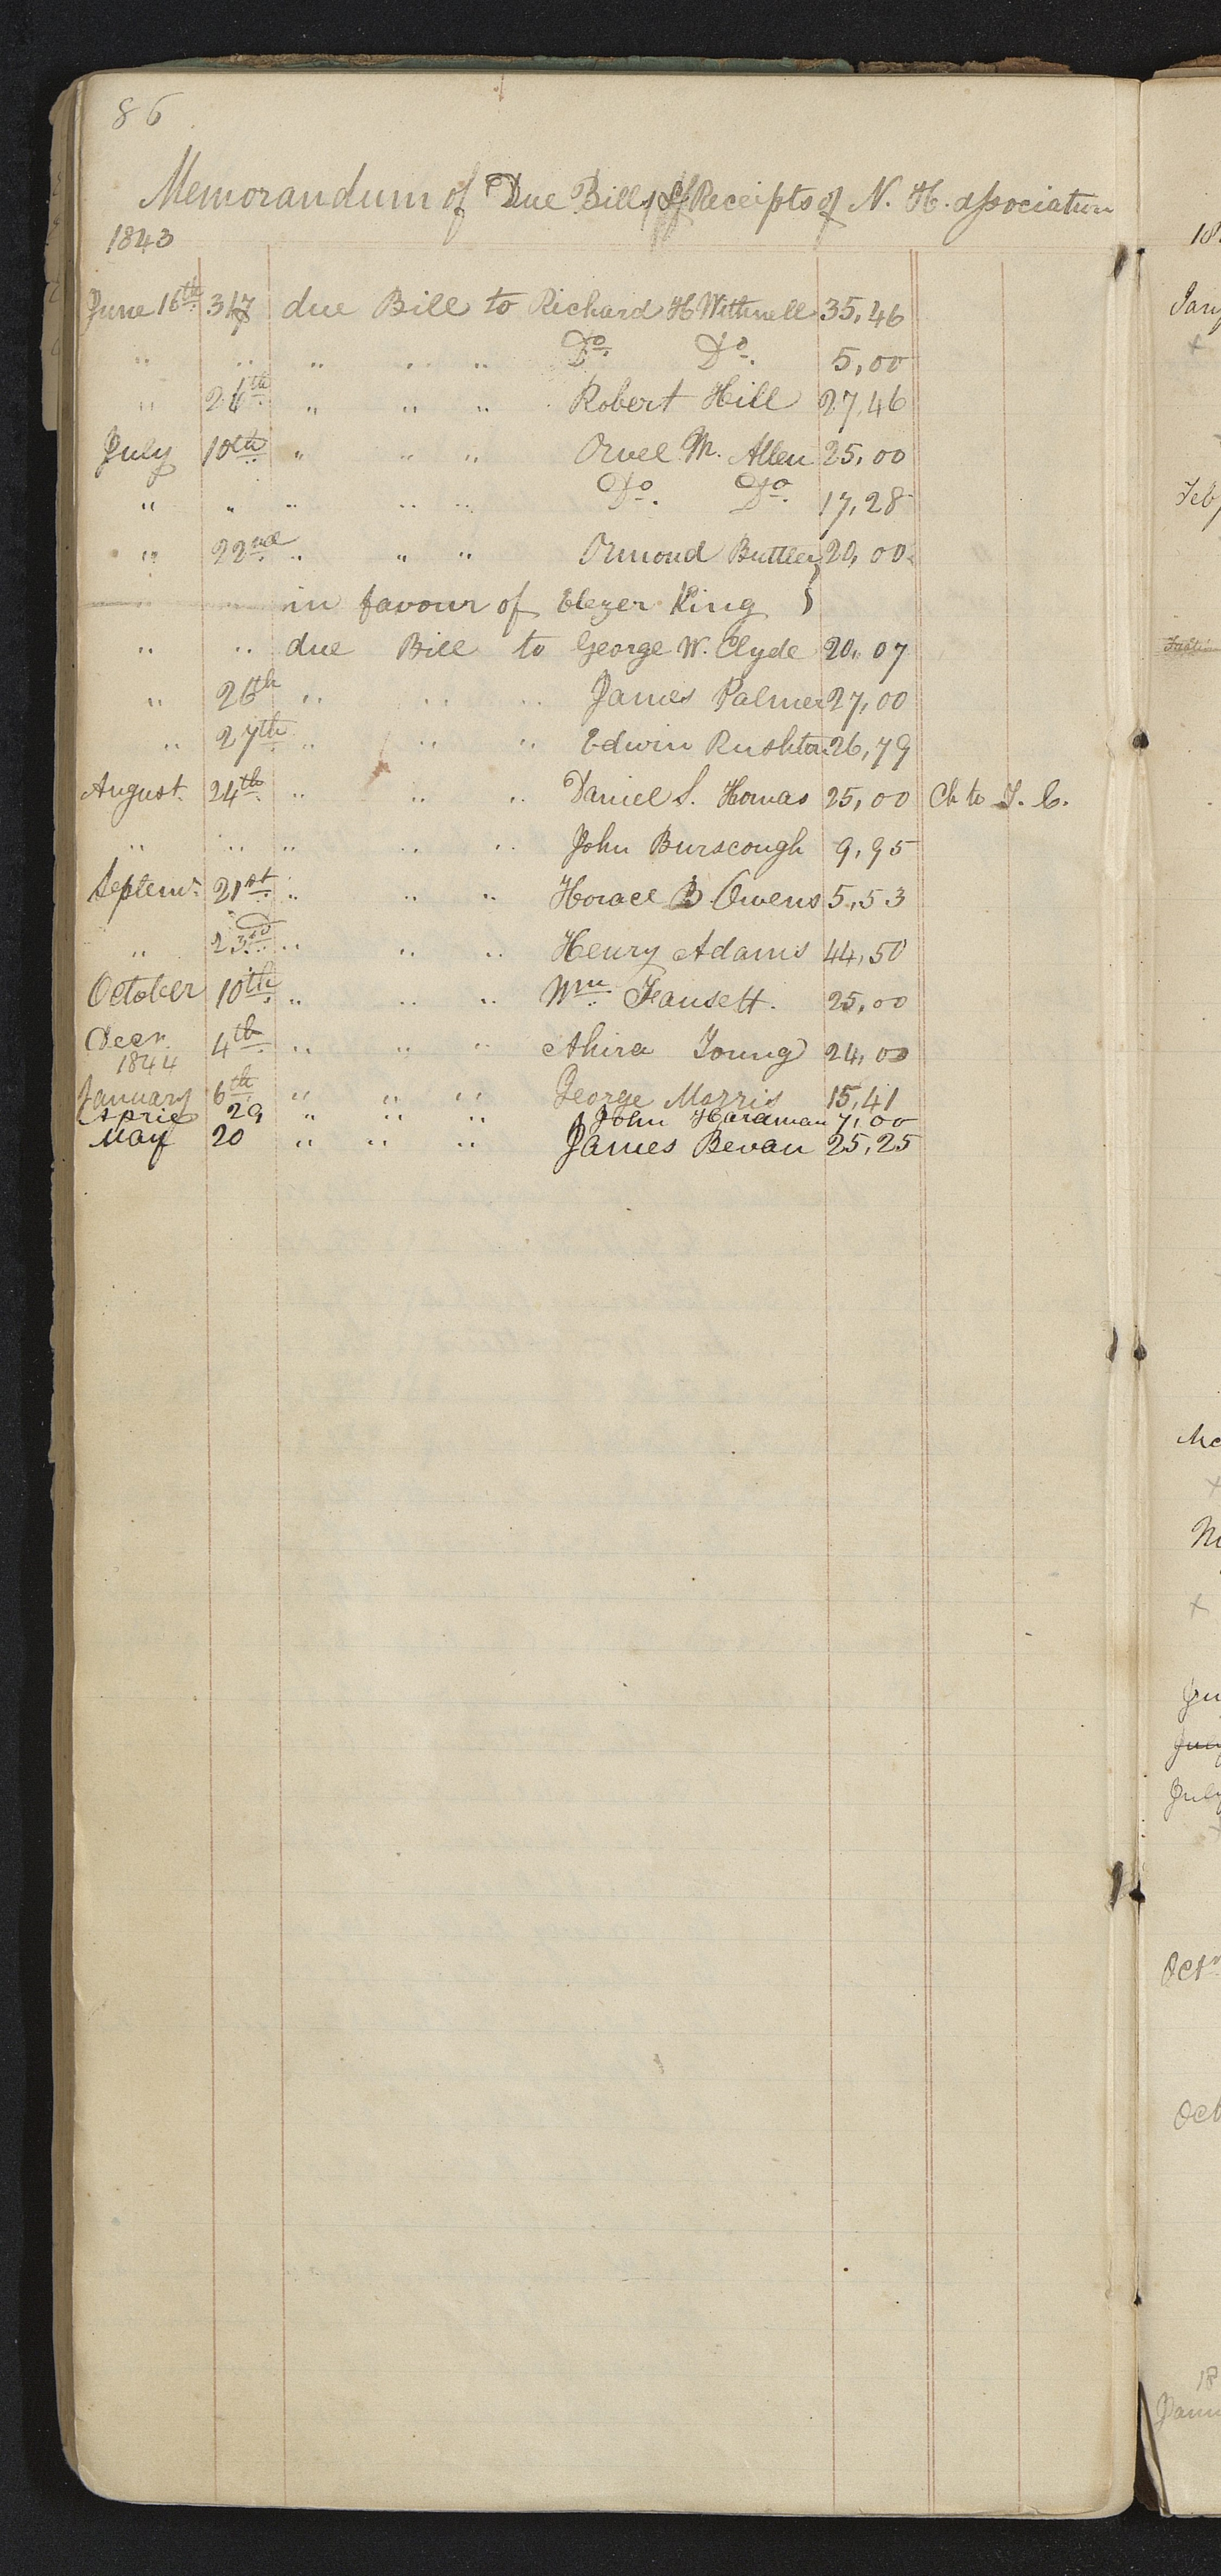 86
Memorandum of Due Bills & Receipts of N. H. association
1843
June 16th 347 due Bill to Richard H Withnell 35,46
" " " " " Do. Do. 5,00
" 26th " " " Robert Hill 27,46
July 10th " " " Orvel M. Allen 25,00
" " " " " Do. Do. 17,28
" 22nd " " " Ormond Buttler 20,00
" " in favour of Elezer King }
" " due Bill to George W. Clyde 20,07
" 26th " " " James Palmer 27,00
" 27th " " " Edwin Rushton 26,79
August 24th " " " Daniel S. Homas 25,00 Ch to T. C.
" " " " " John Burscough 9,95
Septemr 21st " " " Horace B. Owens 5,53
" 23rd " " " Henry Adams 44,50
October 10th " " " Wm Fausett. 25,00
Decr. 4th " " " Ahira Young 24,00
1844
January 6th " " " George Morris 15,41
April 29 " " " John Hardman 7,00
May 20 " " " James Bevan 25,25
18
Jany
Feb
July
July
Octr
Oct
18